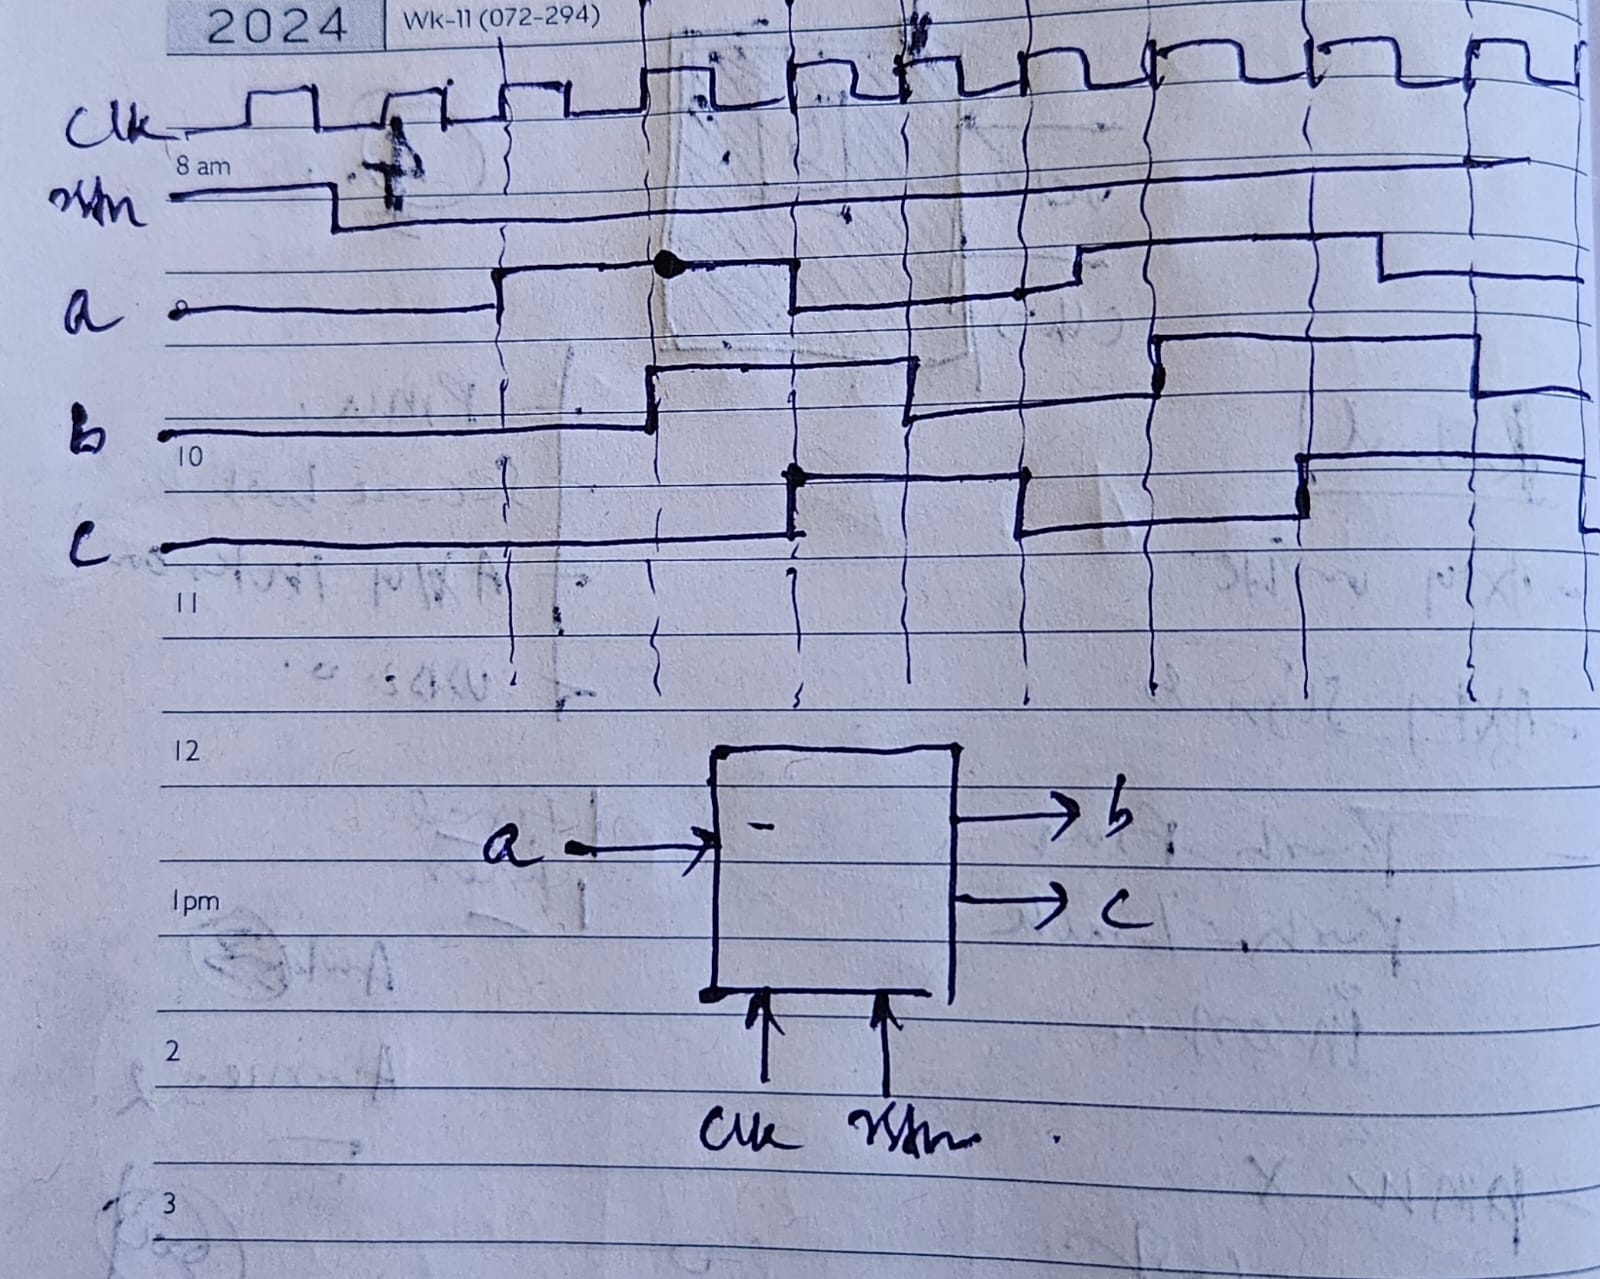 2024 Wk-11 (072-294)
Clk
8 am
rstn
a
9
b
10
c
11
12
a b
1pm
c
2
Clk rstn
3